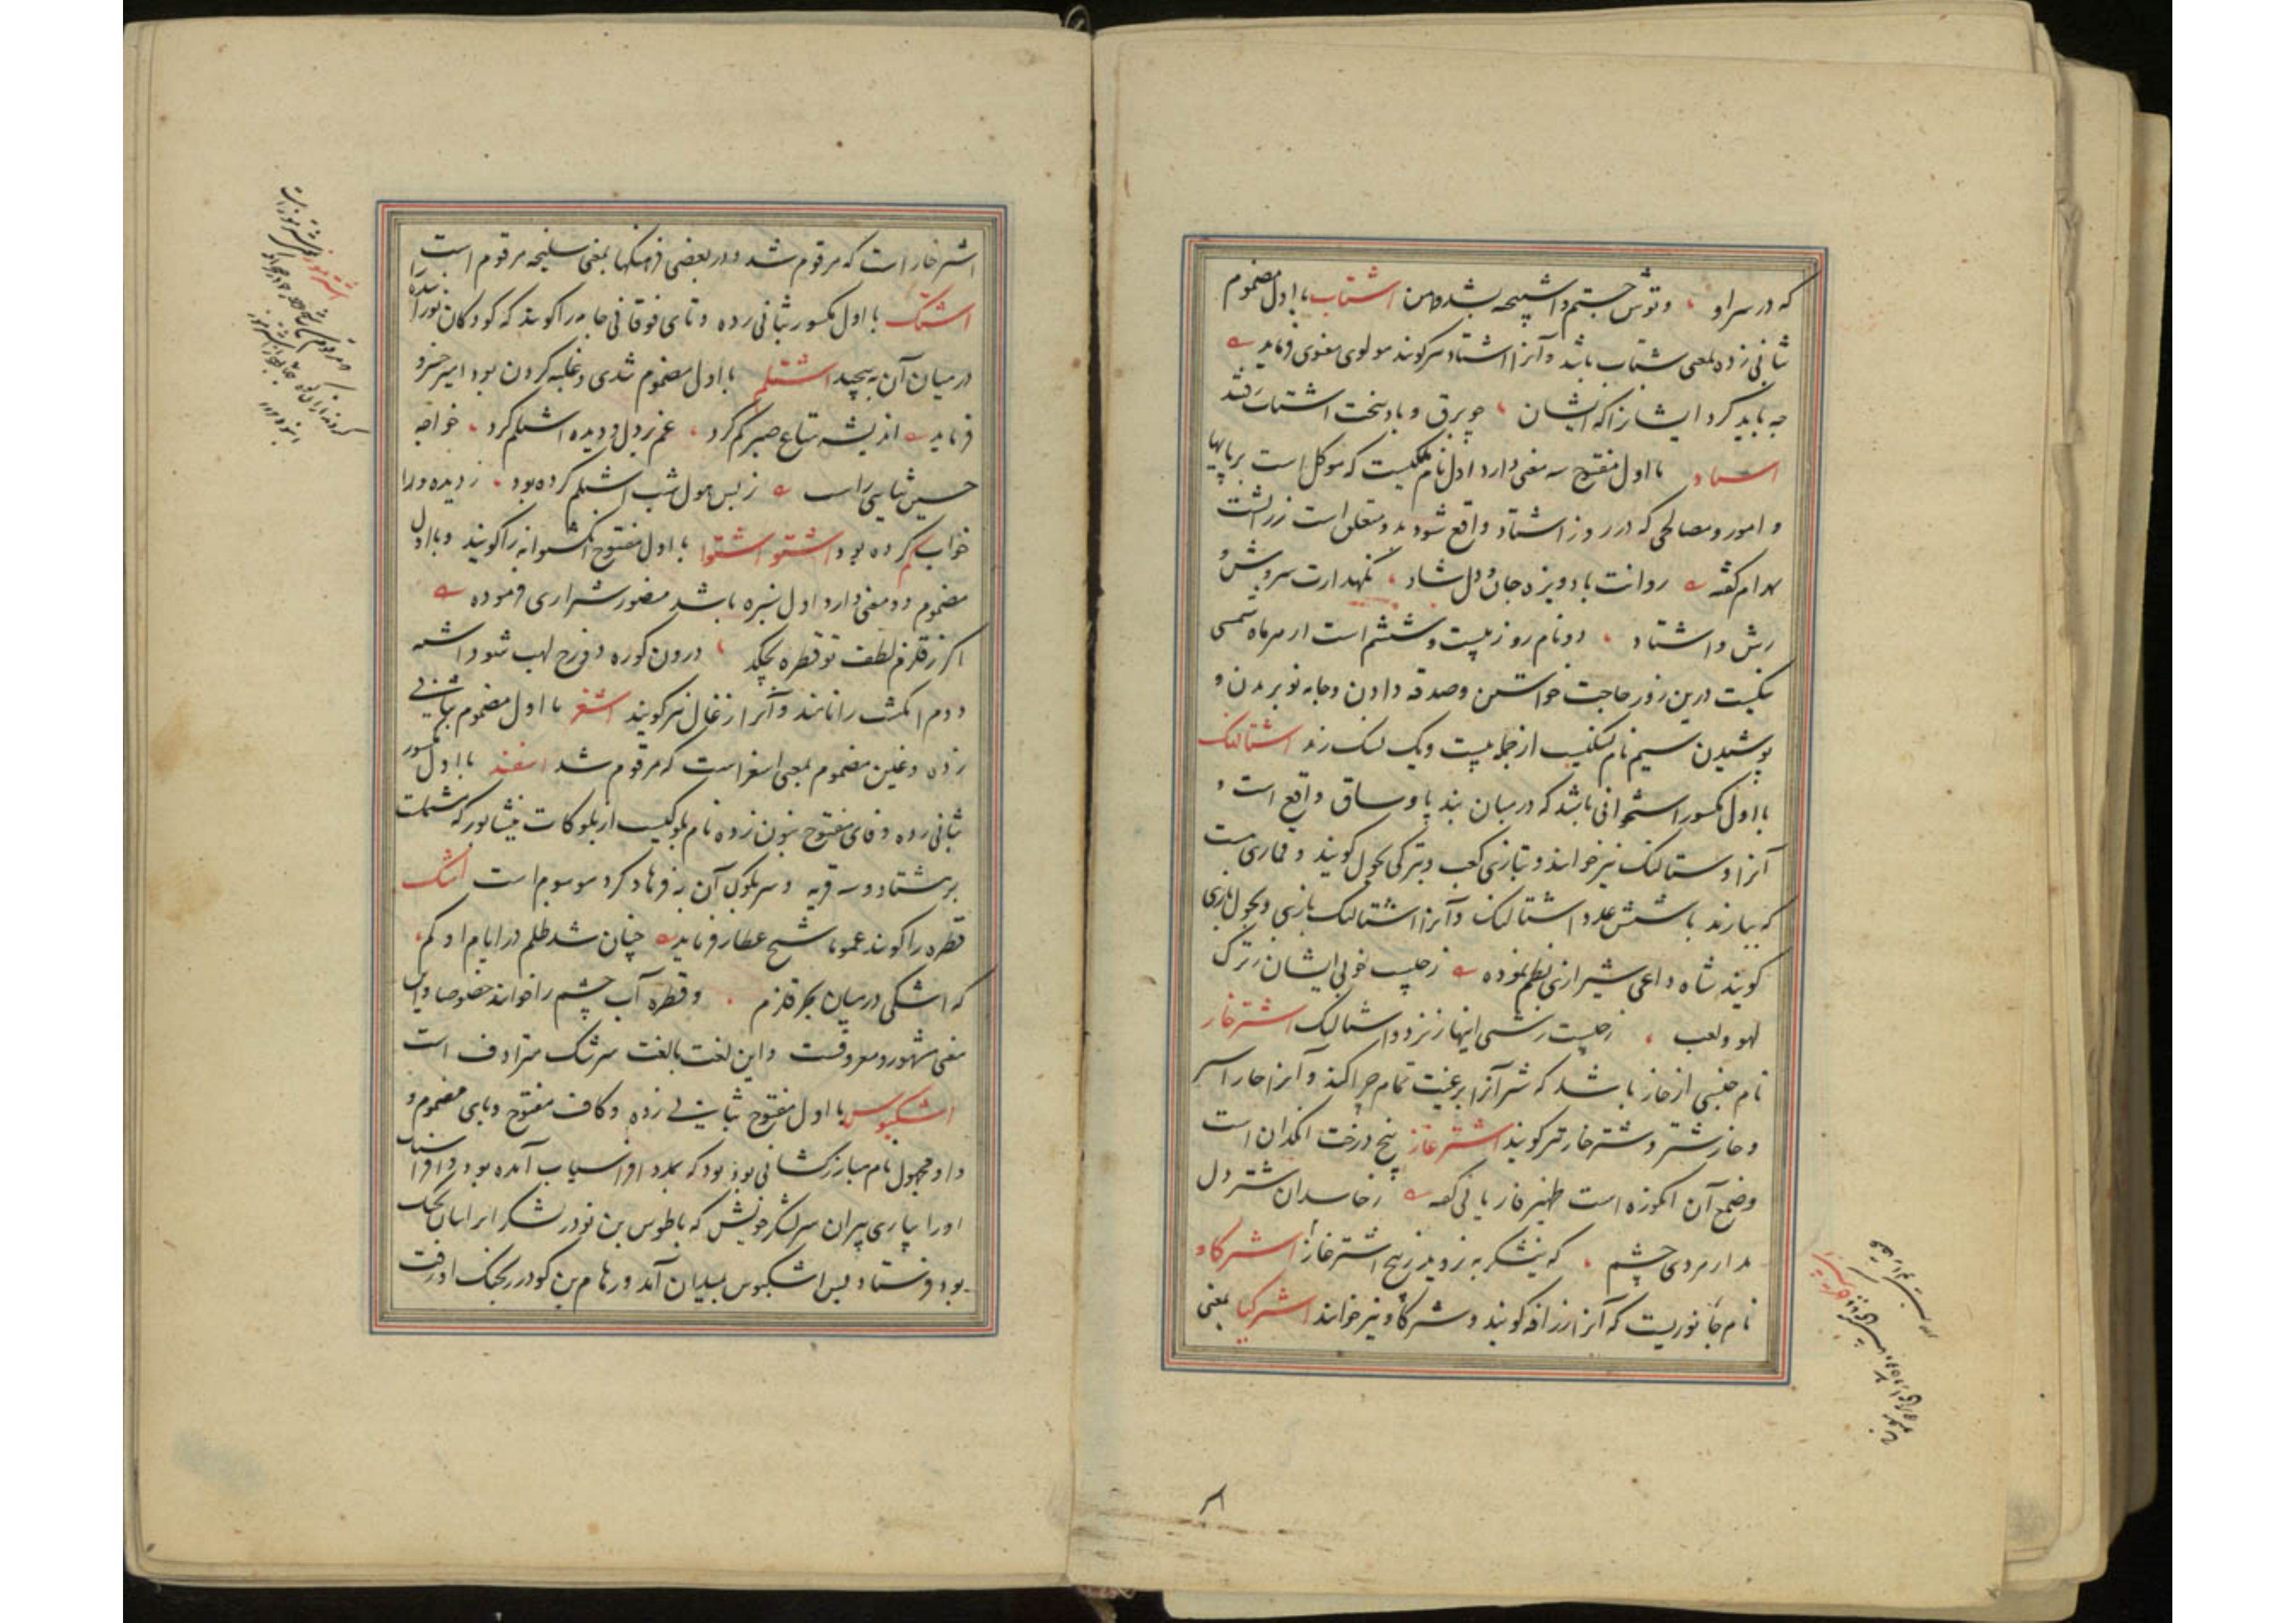 که در سراو ، و توس جستم و اشپیچه بشد من اشتاب با اول مضموم
ثانی زده بمعنی شتاب باشد و آنرا اشتاد سر کویند مولوی معنوی فرماید
چه باید کرد ایشانرا که ایشان ، چو برق و باد سخت اشتاب رفتند
اشتاد با اول مفتوح سه معنی دارد اول نام ملکیست که موکل است بر
و امور و مصالحی که در روز اشتاد واقع شود بدو متعلق است زرتشت
بهرام کفته روانت باد ویزه جان و دل شاد ، نکهدارت سروش و
رش و اشتاد ، دو نام روز بیست و ششم است از هر ماه شمسی
نیکست درین روز حاجت خواستن و صدقه دادن و جامه نو بریدن و
پوشیدن سیم نام نسکیست از جمله بیست و یک نسک زند اشتالنک
با اول مکسور استخوانی باشد که در میان بند پا و ساق واقع است و
آنرا دستالنک نیز خوانند و بتازی کعب و بترکی بجول کویند و قماری است
که ببازند با شش عدد اشتالنک و آنرا اشتالنک بازی و بجول بازی
کویند شاه داعی شیرازی نظم نموده ز چیست خوبی ایشان ز ترک
لهو و لعب ، ز چیست زشتی اینها ز نرد و اشتالنک اشترخار
نام جنسی از خار باشد که شتر آنرا برغبت تمام چرا کند و آنرا خار اشتر
و خار شتر و شتر خار نیز کویند اشترغاز بیخ درخت انکدان است
و صمغ آن انکوزه است ظهیر فاریابی کفته ز خاسدان شتر دل
مدار مردی چشم ، که نیشکر به نروید ز بیخ اشترخار اشترکاو
نام جانوریست که آنرا زرافه کویند و شترکاو نیز خوانند اشترکیا بمعنی
اشترخار است که مرقوم شد و در بعضی فرهنکها بمعنی سلیخه مرقوم است
اشتک با اول مکسور بثانی زده و تای فوقانی جامه را کویند که کودکان نوزاد
در میان آن به پیچید اشتلم با اول مضموم تندی و غلبه کردن بود امیرخسرو
فرماید اندیشه متاع صبر کم کرد ، غم بر دل و دیده اشتلم کرد ، خواجه
حسین ثنایی راست ز بس هول شب اشتلم کرده بود ، ز دیده ورا
خواب کم کرده بود اشتو اشتوا با اول مفتوح کویند و با اول
مضموم دو معنی دارد اول باشد منصور شیرازی فرموده
اکر ز قلزم لطف تو قطره بچکد ، درون کوره دوزخ لهب شود اشتو
دوم انکشت را نامند و آنرا زغال نیز کویند اشغر با اول مضموم بثانی
زده و غین مضموم بمعنی اسغر است که مرقوم شد اشفند با اول مکسور
ثانی زده و فای مفتوح بنون زده نام بلوکیست از بلوکات نیشابور که مشتملست
بر هشتاد و سه قریه و سر بلوک آن به فرهاد کرد موسوم است اشک
قطره را کویند عموما شیخ عطار فرماید چنان شد ظلم در ایام او کم ،
که اشکی در میان بحر قلزم ، و قطره آب چشم را خوانند خصوصا و این
معنی مشهور و معروفست و این لغت بالغت سرشک مترادف است
اشکبوس با اول مفتوح بثانی زده و کاف مفتوح و بای مضموم و
واو مجهول نام مبارز کشانی بوده بود که بمدد افراسیاب آمده بود و افراسیاب
او را بیاری پیران سر لشکر خویش که با طوس بن نوذر لشکر ایرانیان بجنک
بود فرستاد پس اشکبوس بمیدان آمد و رهام بن کودرز بجنک او رفت